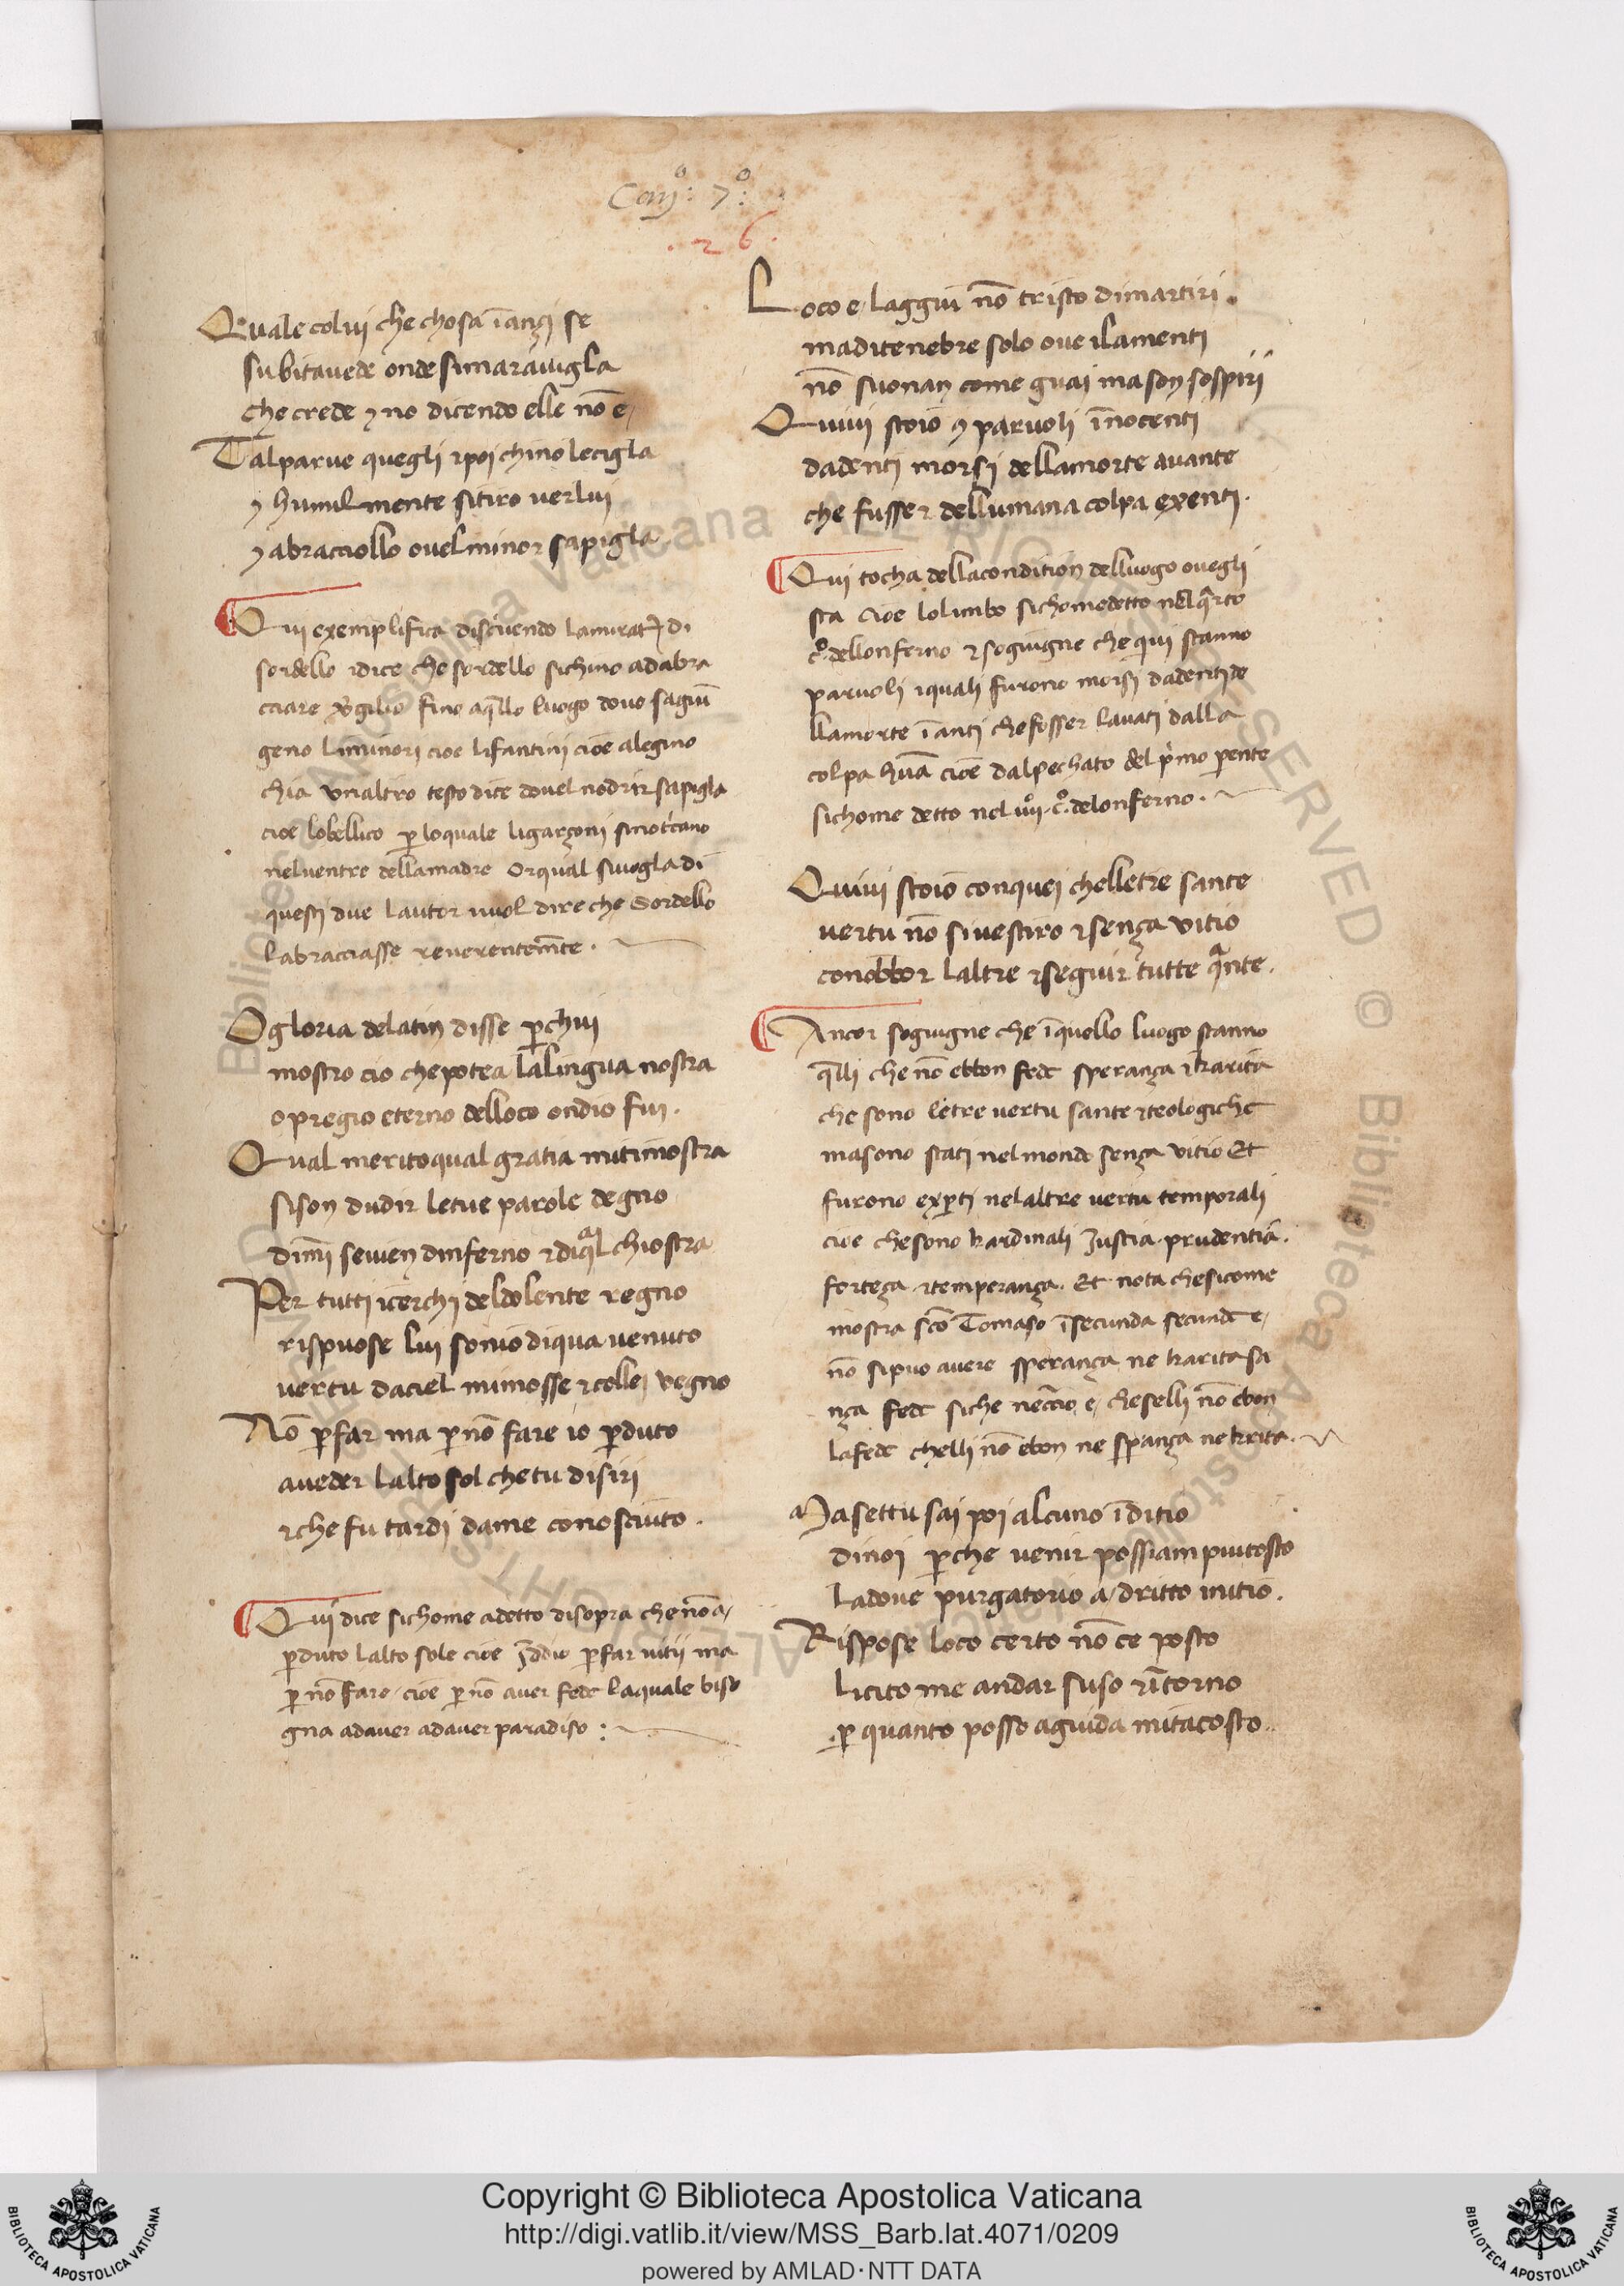 Can.º 7º
. 2 6.
Quale colui che chosa īançi se
subitauede onde simarauigla
Che crede ⁊ no dicendo elle nō e
Talparue quegli ⁊poi chino lecigla
⁊ humilmente sitiro uerlui
⁊ abracciollo ouelminor sapigla
Qui exemplifica discriuendo lanurat di
sordello ⁊dice che sordello sichino adabra
cciare Vgilio fino aqllo luogo doue sagiun
geno liminori cioe lifantini cioe alegino
chia vnaltro testo dice douel nodrir sapigla
cioe lobellico p loquale ligarçoni sinotcano
neluentre dellamadre Orqual siuogladi
questi due lautor vuol dire che Sordello
labracciasse reuerentemte.
O gloria delatin disse pchui
mostro cio chepotea lalingua nostra
o pregio eterno delloco ondio fui.
Qual meritoqual gratia mitimostra
sison dudir letue parole degno
dimi seuien dinferno ⁊ diqual chiostra
Per tutti icerchi deldolente regno
rispuose lui sonio diqua venuto
uertu daciel mimosse ⁊collei vegno
Nō pfar ma pnō fare io pduto
aueder lalto sol chetu disiri
⁊che fu tardi dame conosciuto.
Qui dice sichome adetto disopra chenō a
pduto lalto sole cioe Iddio pfar uitii ma
p nō fare cioe p nō auer fede laquale biso
gna adauer adauer paradiso :
Loco e laggiu nō tristo dimartiri.
maditenebre solo oue ilamenti
nō suonan come guai mason sospiri
Quiui stoio ⁊ paruoli īnocenti
dadenti morsi dellamorte auante
che fusser dellumana colpa exenti.
Qui tocha dellacondition delluogo ouegli
sta cioe lolimbo sichomedetto nel qrto
cº. dellonferno ⁊ sogiugne che qui stanno
paruoli iquali furono morsi dadentide
llamorte īanti chefosser lauati dalla
colpa huā cioe dalpechato del pmo pente
sichome detto nel iiiiº. cº. delonferno.
Quiui stoio conquei chelletre sante
vertu nō siuestiro ⁊sença vitio
conobbor laltre ⁊seguir tutte qnte.
Ancor sogiugne che īquello luogo stanno
qlli che nō ebbon fede sperança ⁊karita
che sono letre vertu sante ⁊teologiche
masono stati nelmondo sença vitio Et
furono expti nelaltre vertu temporali
cioe chesono kardinali Iustia. prudentia.
forteça ⁊temperança. Et nota chesicome
mostra sco Tomaso īsecunda secunde e
nō sipuo auere sperança ne karita sa
nça fede siche nēccio e cheselli nō ebon
lafede chelli nō ebon ne spança ne krita.
Masettu sai poi alcuno īditio
dinoi pche venir possiam piutosto
ladoue purgatorio a dritto initio.
Rispose loco certo nō ce posto
licito me andar suso ⁊ītorno
p quanto posso aguida mitacosto.
Copyright © Biblioteca Apostolica Vaticana
http://digi.vatlib.it/view/MSS_Barb.lat.4071/0209
powered by AMLAD·NTT DATA